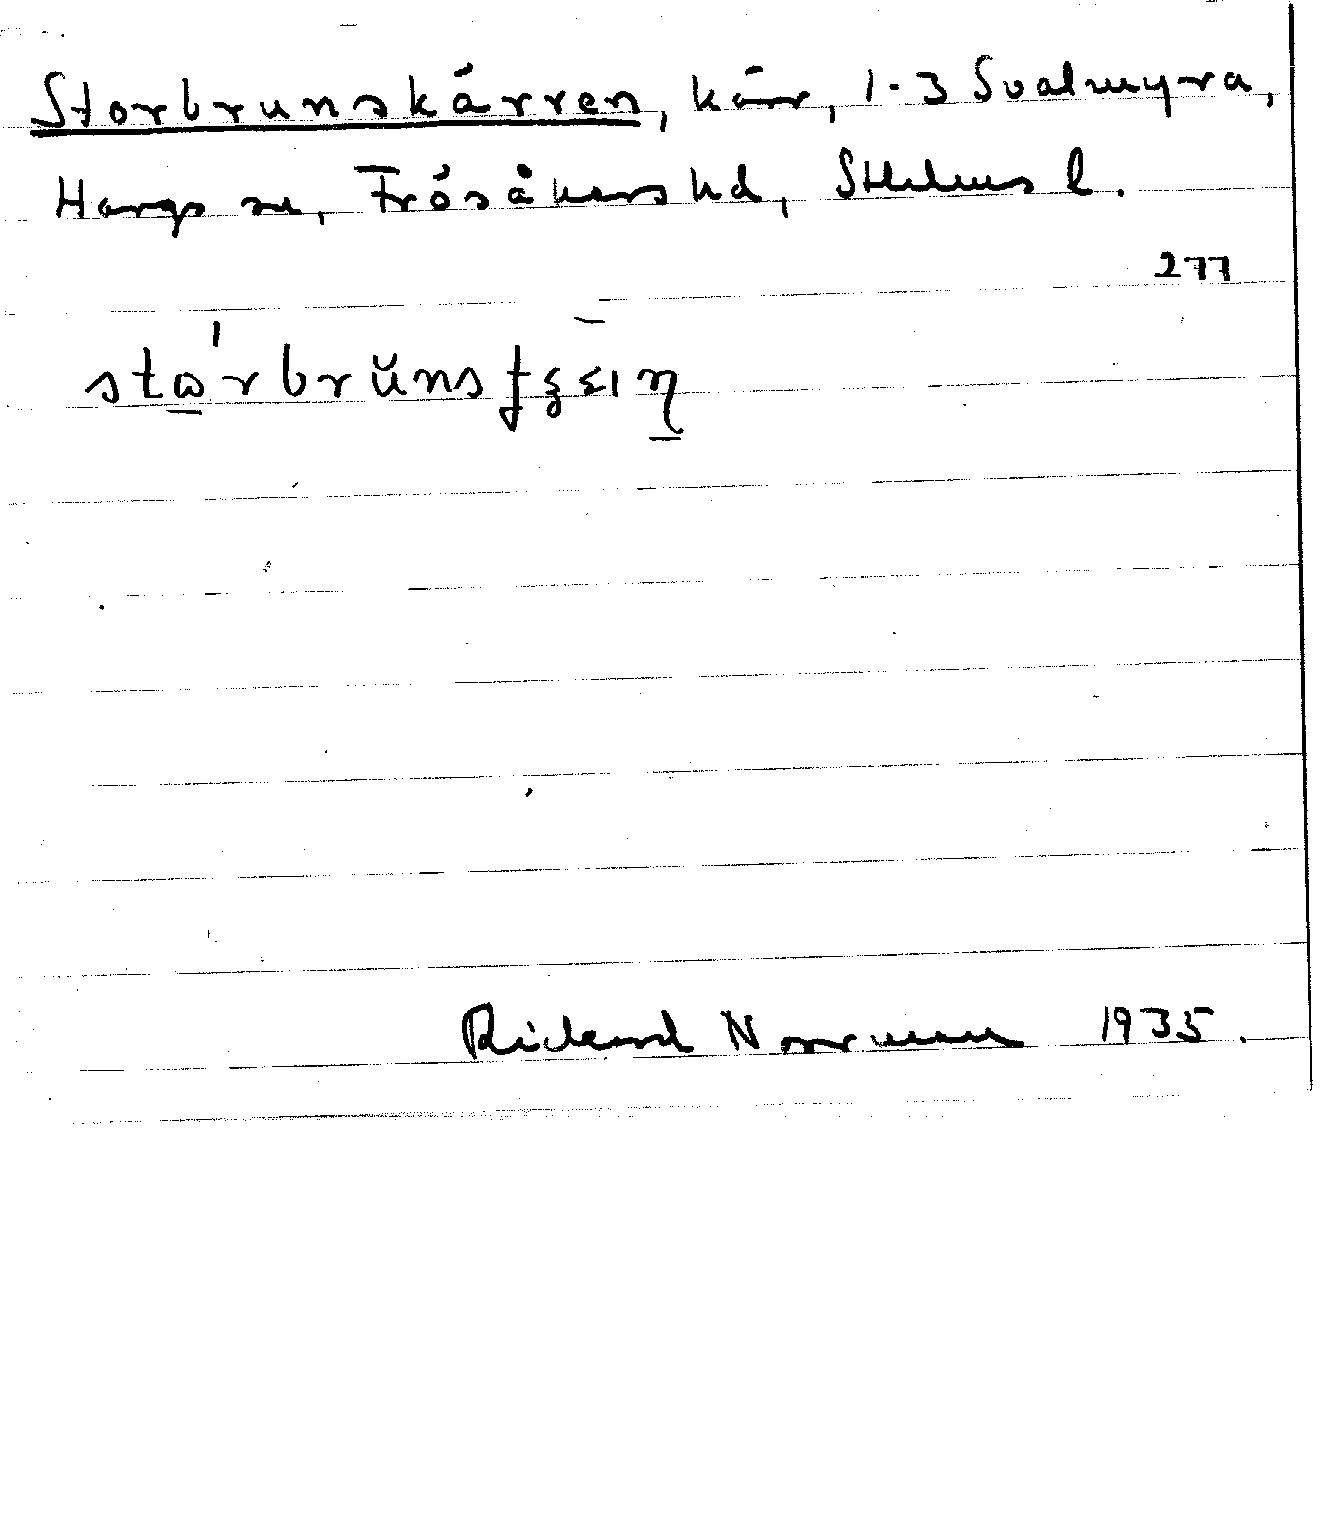 Storbrunskärren, kärr, 1-3 Svalmyra,
Hargs sn, Frösåkers hd, Sthlms l.
277
Rickard Norrman 1935.